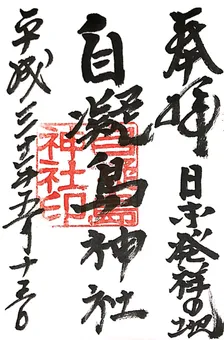 奉拝 日本発祥の地
自凝島神社
自凝島神社印
平成三十年五月十三日